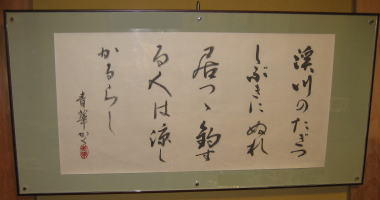 渓川のたぎつ
しぶきにぬれ
居つゝ釣す
る人は涼し
かるらし
青華かく